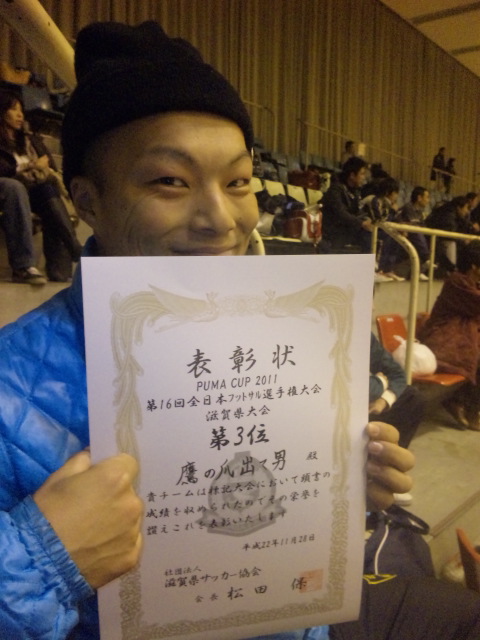 表彰状
PUMA CUP 2011
第16回全日本フットサル選手権大会
滋賀県大会
第3位
鷹の爪出て男 殿
貴チームは標記大会において頭書の
成績を収められたのでその栄誉を
讃えこれを表彰いたします
平成22年11月28日
社団法人
滋賀県サッカー協会
会長 松田 保